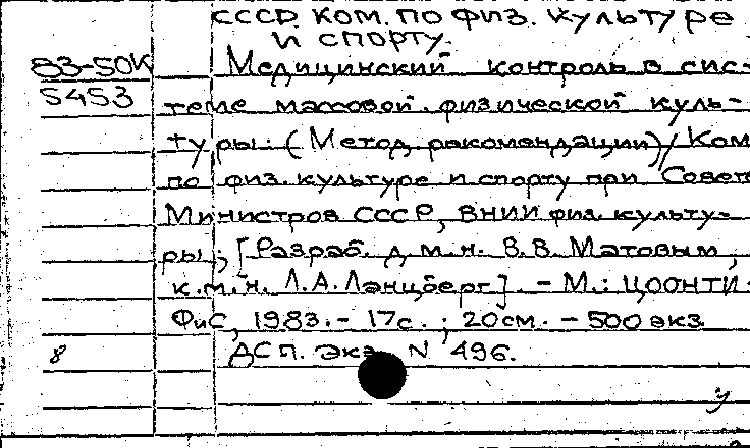 СССР. КОМ. ПО ФИЗ. КУЛЬТУРЕ
И СПОРТУ.
83-50К Медицинский контроль в сис-
5453 теме массовой физической куль-
туры: (Метод. рекомендации) / Ком.
по физ. культуре и спорту при Совете
Министров СССР, ВНИИ физ. культу-
ры; [Разраб. д.м.н. В.В. Матовым,
к.м.н. Л.А. Ланцберг]. - М.: ЦООНТИ-
ФиС, 1983. - 17с.; 20см. - 500 экз.
8 ДСП. Экз. N 496.
у